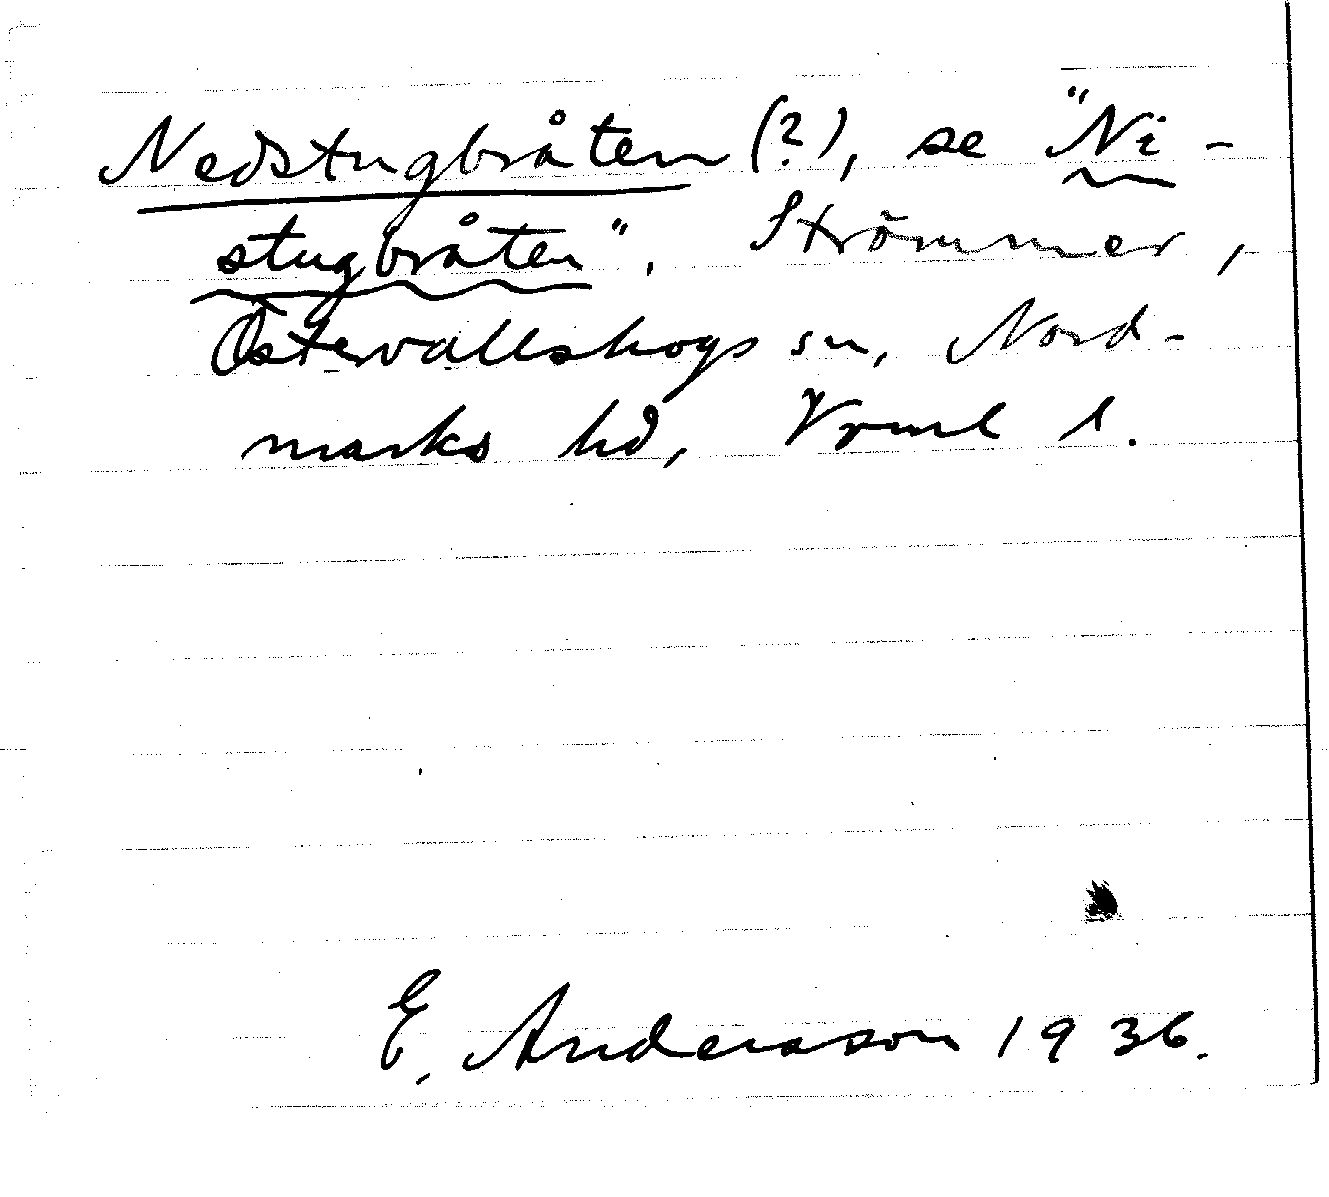 Nedstugbråten (?), se "Ni-
stugbråten". Strömmer,
Östervallskogs sn, Nord-
marks hd, Vrml l.
E. Andersson 1936.